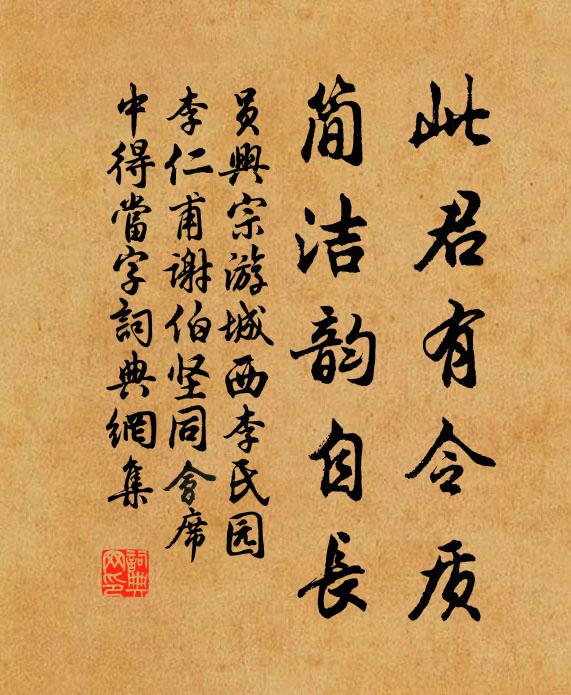 此君有令质
简洁韵自長
員興宗游城西李氏园
李仁甫谢伯坚同會席
中得當字詞典網集
詞典网印